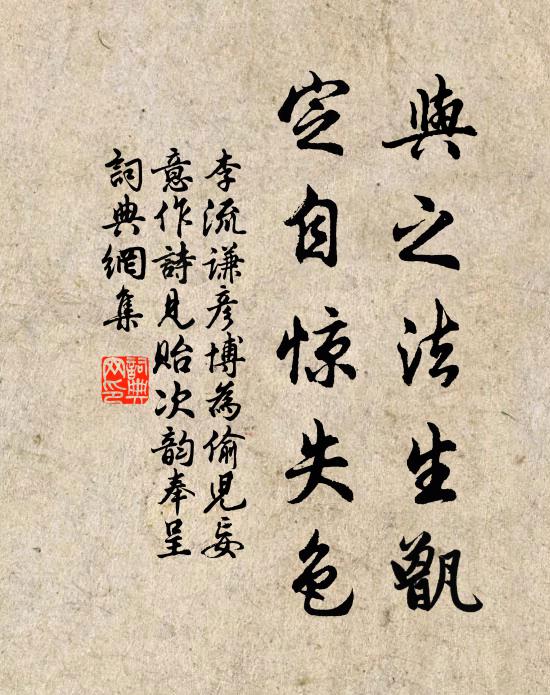 與之法生甑
定自惊失色
李流谦彦博為偷兒妄
意作詩見貽次韵奉呈
詞典網集
詞典网印